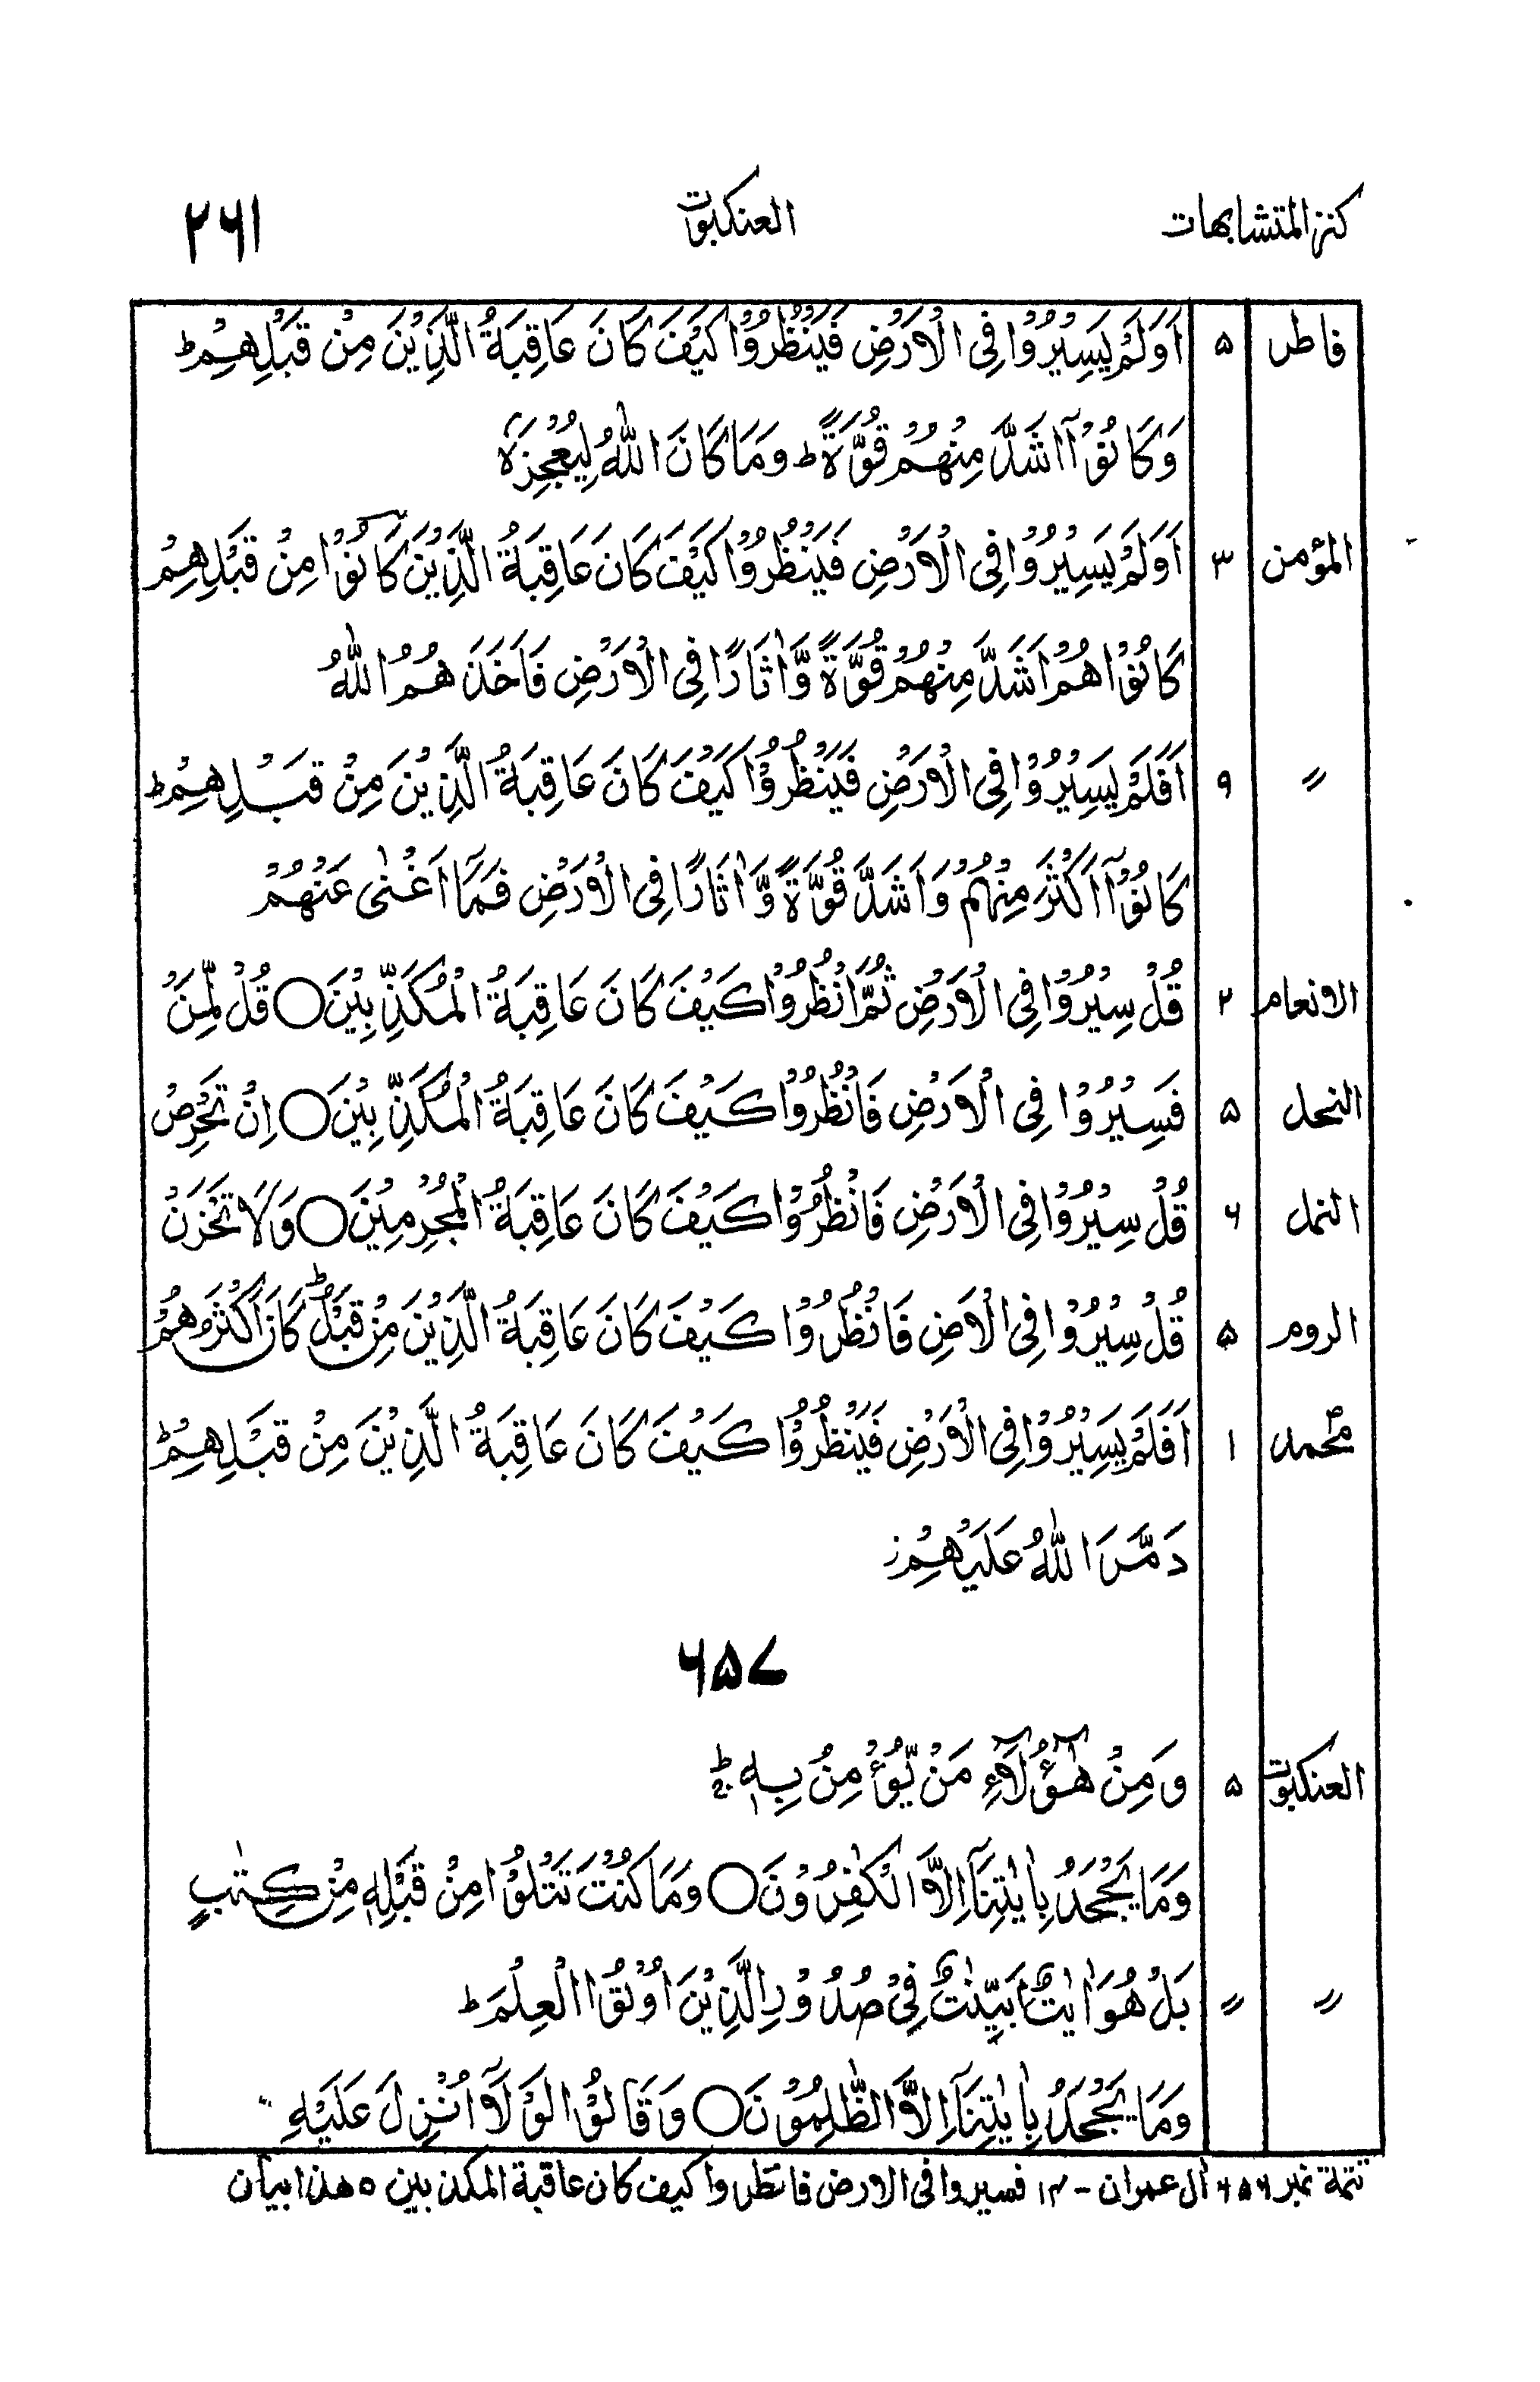 كنز المتشابهات العنكبوت ۲۶۱
فاطر ۵ اَوَلَمْ يَسِيْرُوْا فِى الْاَرْضِ فَيَنْظُرُوْا كَيْفَ كَانَ عَاقِبَةُ الَّذِيْنَ مِنْ قَبْلِهِمْ ط
وَكَانُوْٓا اَشَدَّ مِنْهُمْ قُوَّةً ط وَمَا كَانَ اللّٰهُ لِيُعْجِزَهٗ
المؤمن ۳ اَوَلَمْ يَسِيْرُوْا فِى الْاَرْضِ فَيَنْظُرُوْا كَيْفَ كَانَ عَاقِبَةُ الَّذِيْنَ كَانُوْا مِنْ قَبْلِهِمْ
كَانُوْا هُمْ اَشَدَّ مِنْهُمْ قُوَّةً وَّاٰثَارًا فِى الْاَرْضِ فَاَخَذَهُمُ اللّٰهُ
〃 ۹ اَفَلَمْ يَسِيْرُوْا فِى الْاَرْضِ فَيَنْظُرُوْا كَيْفَ كَانَ عَاقِبَةُ الَّذِيْنَ مِنْ قَبْلِهِمْ ط
كَانُوْٓا اَكْثَرَ مِنْهُمْ وَاَشَدَّ قُوَّةً وَّاٰثَارًا فِى الْاَرْضِ فَمَآ اَغْنٰى عَنْهُمْ
الانعام ۲ قُلْ سِيْرُوْا فِى الْاَرْضِ ثُمَّ انْظُرُوْا كَيْفَ كَانَ عَاقِبَةُ الْمُكَذِّبِيْنَ ○ قُلْ لِّمَنْ
النحل ۵ فَسِيْرُوْا فِى الْاَرْضِ فَانْظُرُوْا كَيْفَ كَانَ عَاقِبَةُ الْمُكَذِّبِيْنَ ○ اِنْ تَحْرِصْ
النمل ۶ قُلْ سِيْرُوْا فِى الْاَرْضِ فَانْظُرُوْا كَيْفَ كَانَ عَاقِبَةُ الْمُجْرِمِيْنَ ○ وَلَا تَحْزَنْ
الروم ۵ قُلْ سِيْرُوْا فِى الْاَرْضِ فَانْظُرُوْا كَيْفَ كَانَ عَاقِبَةُ الَّذِيْنَ مِنْ قَبْلُ ط كَانَ اَكْثَرُهُمْ
محمدؐ ۱ اَفَلَمْ يَسِيْرُوْا فِى الْاَرْضِ فَيَنْظُرُوْا كَيْفَ كَانَ عَاقِبَةُ الَّذِيْنَ مِنْ قَبْلِهِمْ ط
دَمَّرَ اللّٰهُ عَلَيْهِمْ ز
۶۵۷
العنكبوت ۵ وَمِنْ هٰٓؤُلَآءِ مَنْ يُّؤْمِنُ بِهٖ ط
وَمَا يَجْحَدُ بِاٰيٰتِنَآ اِلَّا الْكٰفِرُوْنَ ○ وَمَا كُنْتَ تَتْلُوْا مِنْ قَبْلِهٖ مِنْ كِتٰبٍ
〃 〃 بَلْ هُوَ اٰيٰتٌۢ بَيِّنٰتٌ فِىْ صُدُوْرِ الَّذِيْنَ اُوْتُوا الْعِلْمَ ط
وَمَا يَجْحَدُ بِاٰيٰتِنَآ اِلَّا الظّٰلِمُوْنَ ○ وَقَالُوْا لَوْلَآ اُنْزِلَ عَلَيْهِ
تتمة نمبر ۶۵۶ اٰل عمران - ۱۴ فسيروا فى الارض فانظروا كيف كان عاقبة المكذبين ○ هذا بيان